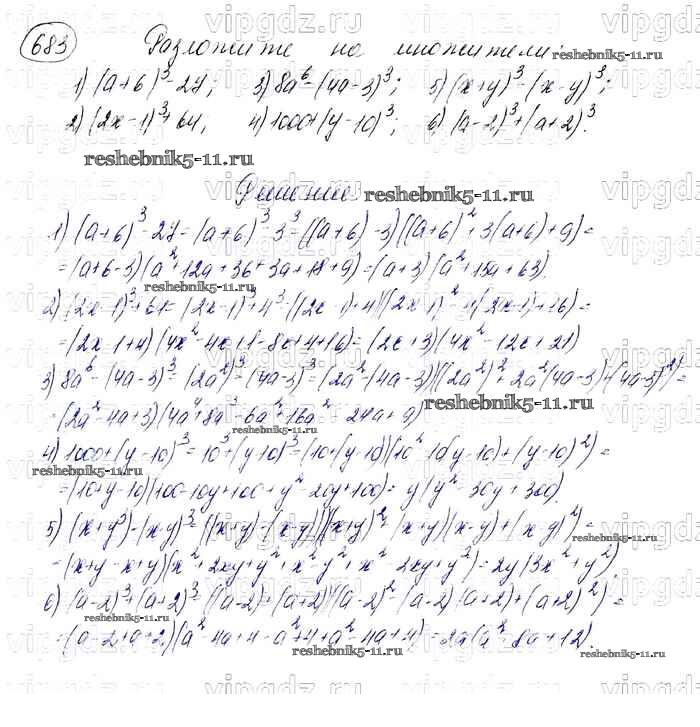 683 Разложите на множители:
1) (a+6)³-27; 3) 8a⁶-(4a-3)³; 5) (x+y)³-(x-y)³;
2) (2x-1)³+64; 4) 1000+(y-10)³; 6) (a-2)³+(a+2)³.
reshebnik5-11.ru
Решение. reshebnik5-11.ru
1) (a+6)³-27=(a+6)³-3³=((a+6)-3)((a+6)²+3(a+6)+9)=
=(a+6-3)(a²+12a+36+3a+18+9)=(a+3)(a²+15a+63).
reshebnik5-11.ru
2) (2x-1)³+64=(2x-1)³+4³=((2x-1)+4)((2x-1)²-4(2x-1)+16)=
=(2x-1+4)(4x²-4x+1-8x+4+16)=(2x+3)(4x²-12x+21)
3) 8a⁶-(4a-3)³=(2a²)³-(4a-3)³=(2a²-(4a-3))((2a²)²+2a²(4a-3)+(4a-3)²)=
=(2a²-4a+3)(4a⁴+8a³-6a²+16a²-24a+9) reshebnik5-11.ru
reshebnik5-11.ru
4) 1000+(y-10)³=10³+(y-10)³=(10+(y-10))(10²-10(y-10)+(y-10)²)=
reshebnik5-11.ru
=(10+y-10)(100-10y+100+y²-20y+100)=y(y²-30y+300).
5) (x+y)³-(x-y)³=((x+y)-(x-y))((x+y)²+(x+y)(x-y)+(x-y)²)=
reshebnik5-11.ru
=(x+y-x+y)(x²+2xy+y²+x²-y²+x²-2xy+y²)=2y(3x²+y²)
6) (a-2)³+(a+2)³=((a-2)+(a+2))((a-2)²-(a-2)(a+2)+(a+2)²)=
reshebnik5-11.ru
=(a-2+a+2)(a²-4a+4-a²+4+a²-4a+4)=2a(a²-8a+12).
reshebnik5-11.ru reshebnik5-11.ru